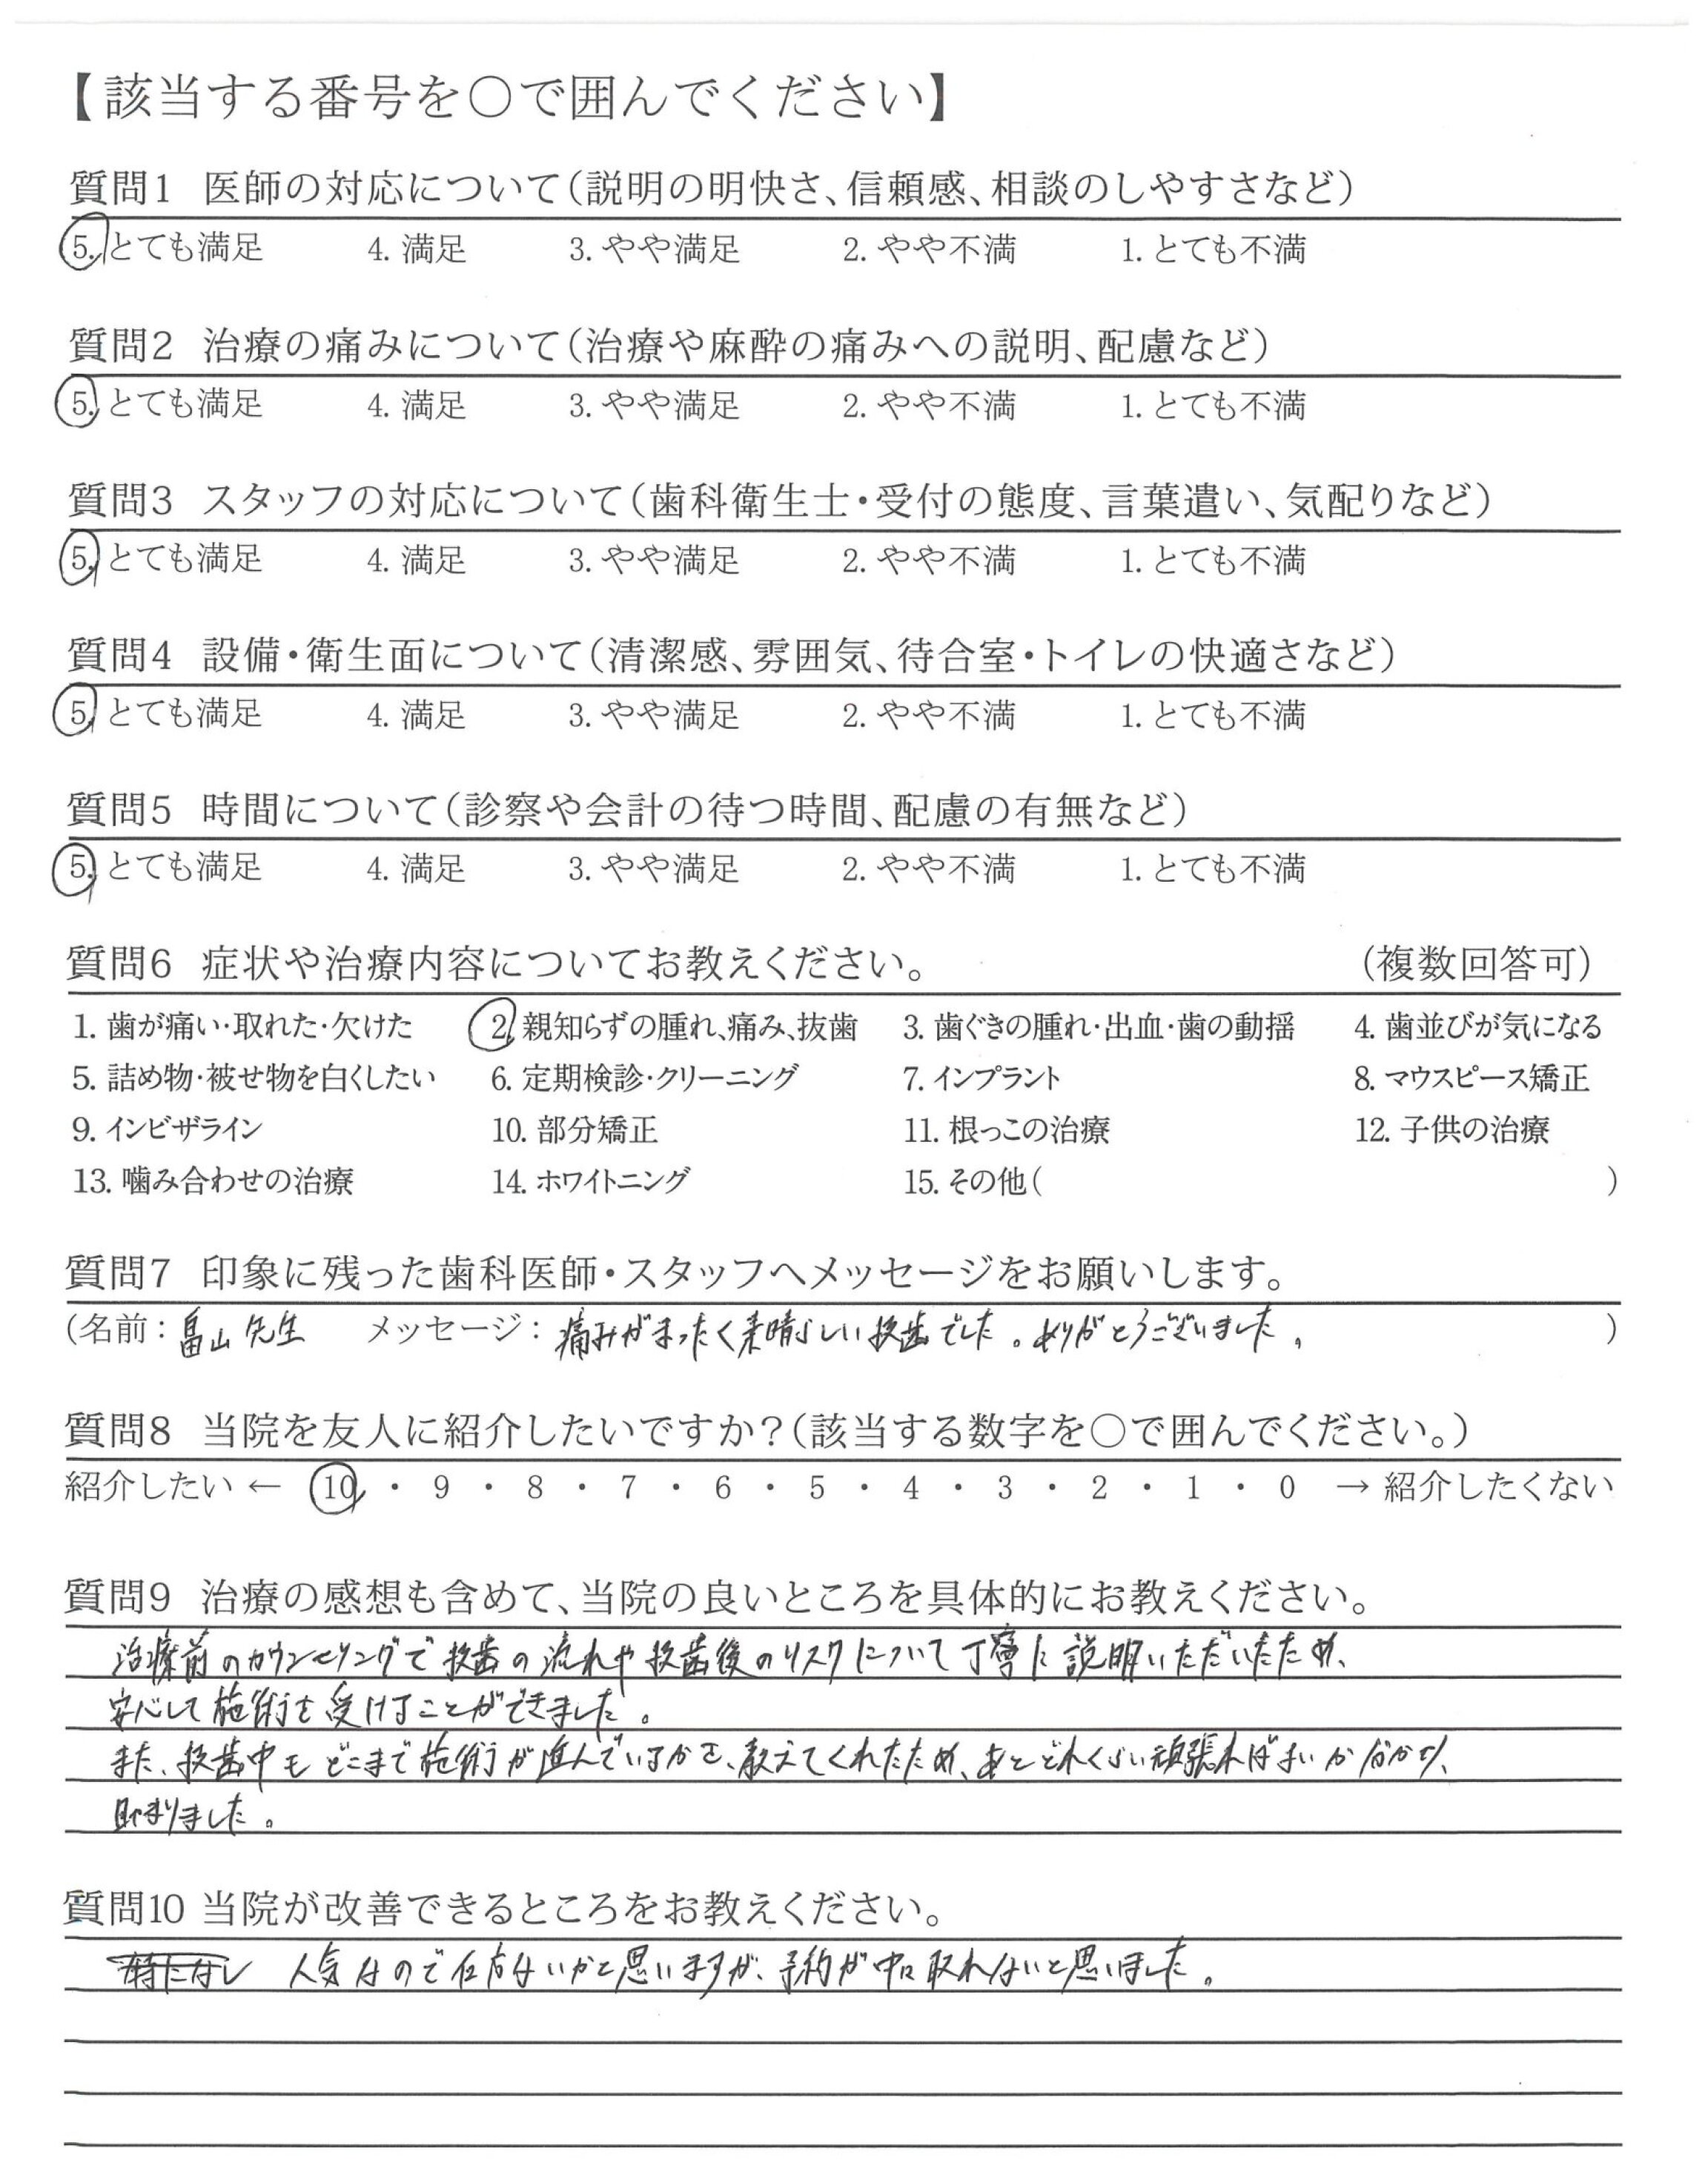 【該当する番号を〇で囲んでください】
質問1 医師の対応について（説明の明快さ、信頼感、相談のしやすさなど）
5. とても満足 4. 満足 3. やや満足 2. やや不満 1. とても不満
質問2 治療の痛みについて（治療や麻酔の痛みへの説明、配慮など）
5. とても満足 4. 満足 3. やや満足 2. やや不満 1. とても不満
質問3 スタッフの対応について（歯科衛生士・受付の態度、言葉遣い、気配りなど）
5. とても満足 4. 満足 3. やや満足 2. やや不満 1. とても不満
質問4 設備・衛生面について（清潔感、雰囲気、待合室・トイレの快適さなど）
5. とても満足 4. 満足 3. やや満足 2. やや不満 1. とても不満
質問5 時間について（診察や会計の待つ時間、配慮の有無など）
5. とても満足 4. 満足 3. やや満足 2. やや不満 1. とても不満
質問6 症状や治療内容についてお教えください。 （複数回答可）
1. 歯が痛い・取れた・欠けた 2. 親知らずの腫れ、痛み、抜歯 3. 歯ぐきの腫れ・出血・歯の動揺 4. 歯並びが気になる
5. 詰め物・被せ物を白くしたい 6. 定期検診・クリーニング 7. インプラント 8. マウスピース矯正
9. インビザライン 10. 部分矯正 11. 根っこの治療 12. 子供の治療
13. 噛み合わせの治療 14. ホワイトニング 15. その他（ ）
質問7 印象に残った歯科医師・スタッフへメッセージをお願いします。
（名前：畠山先生 メッセージ：痛みがまったく素晴らしい抜歯でした。ありがとうございました。 ）
質問8 当院を友人に紹介したいですか？（該当する数字を〇で囲んでください。）
紹介したい ← 10 ・ 9 ・ 8 ・ 7 ・ 6 ・ 5 ・ 4 ・ 3 ・ 2 ・ 1 ・ 0 → 紹介したくない
質問9 治療の感想も含めて、当院の良いところを具体的にお教えください。
治療前のカウンセリングで抜歯の流れや抜歯後のリスクについて丁寧に説明いただいたため、
安心して施術を受けることができました。
また、抜歯中もどこまで施術が進んでいるかを、教えてくれたため、あとどれくらい頑張ればよいか分かり、
助かりました。
質問10 当院が改善できるところをお教えください。
特になし 人気なので仕方ないかと思いますが、予約が中々取れないと思いました。